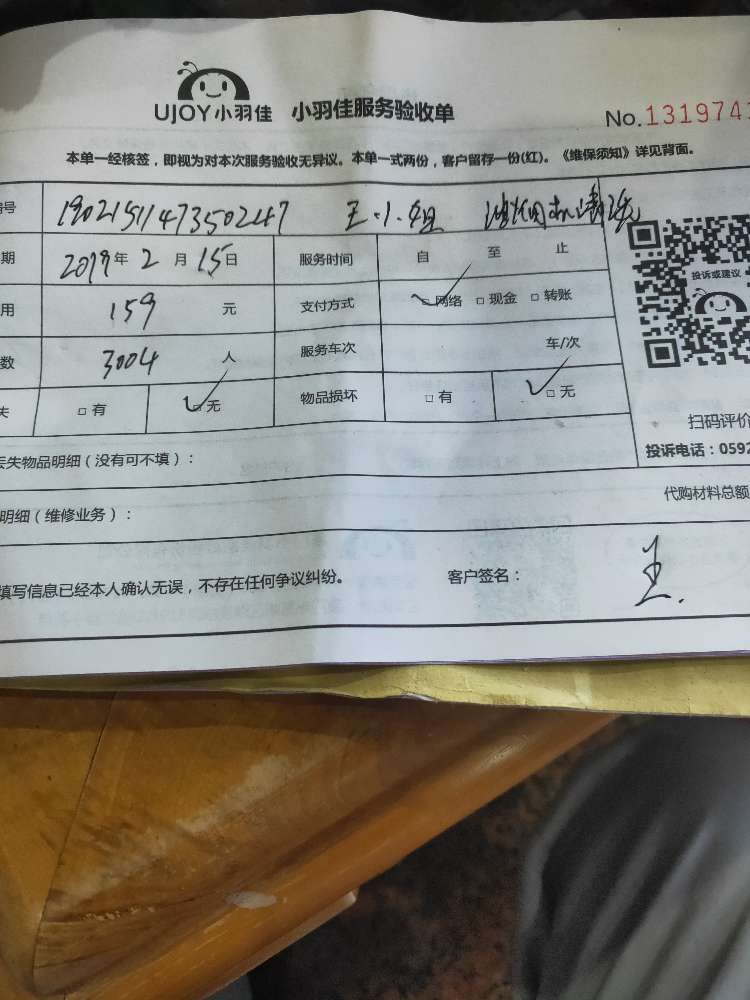 UJOY小羽佳 小羽佳服务验收单 No.131974
本单一经核签，即视为对本次服务验收无异议。本单一式两份，客户留存一份(红)。《维保须知》详见背面。
号 1902151147350247 王小姐 油烟机清洗
期 2019年2月15日 服务时间 自 至 止
投诉或建议
用 159 元 支付方式 □网络 □现金 □转账
数 3004 人 服务车次 车/次
失 □有 □无 物品损坏 □有 □无
扫码评价
投诉电话：0592
丢失物品明细（没有可不填）：
代购材料总额
明细（维修业务）：
填写信息已经本人确认无误，不存在任何争议纠纷。 客户签名： 王.